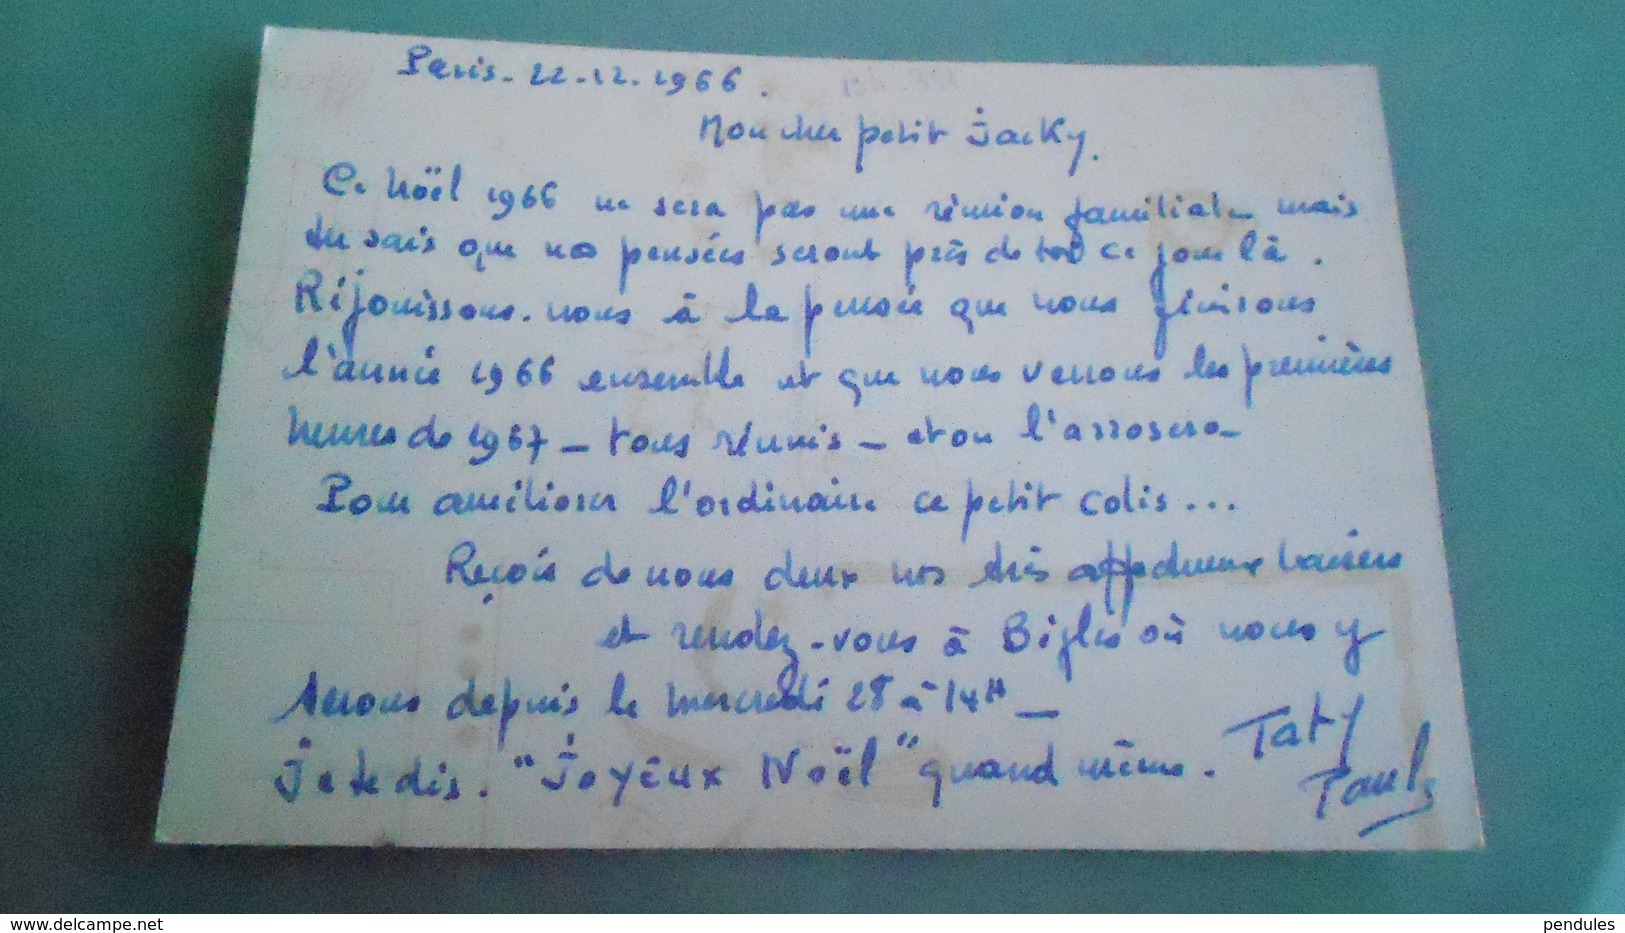 Paris - 22-12-1966.
Mon cher petit Jacky.
Ce Noël 1966 ne sera pas une réunion familiale mais
tu sais que nos pensées seront près de toi ce jour là.
Réjouissons-nous à la pensée que nous finirons
l'année 1966 ensemble et que nous verrons les premières
heures de 1967 - tous réunis - et on l'arrosera -
Pour améliorer l'ordinaire ce petit colis...
Reçois de nous deux nos très affectueux baisers
et rendez-vous à où nous y
serons depuis le mercredi 28 à 14H -
Je te dis. "Joyeux Noël" quand même.
Taty
Paule
www.delcampe.net
pendules